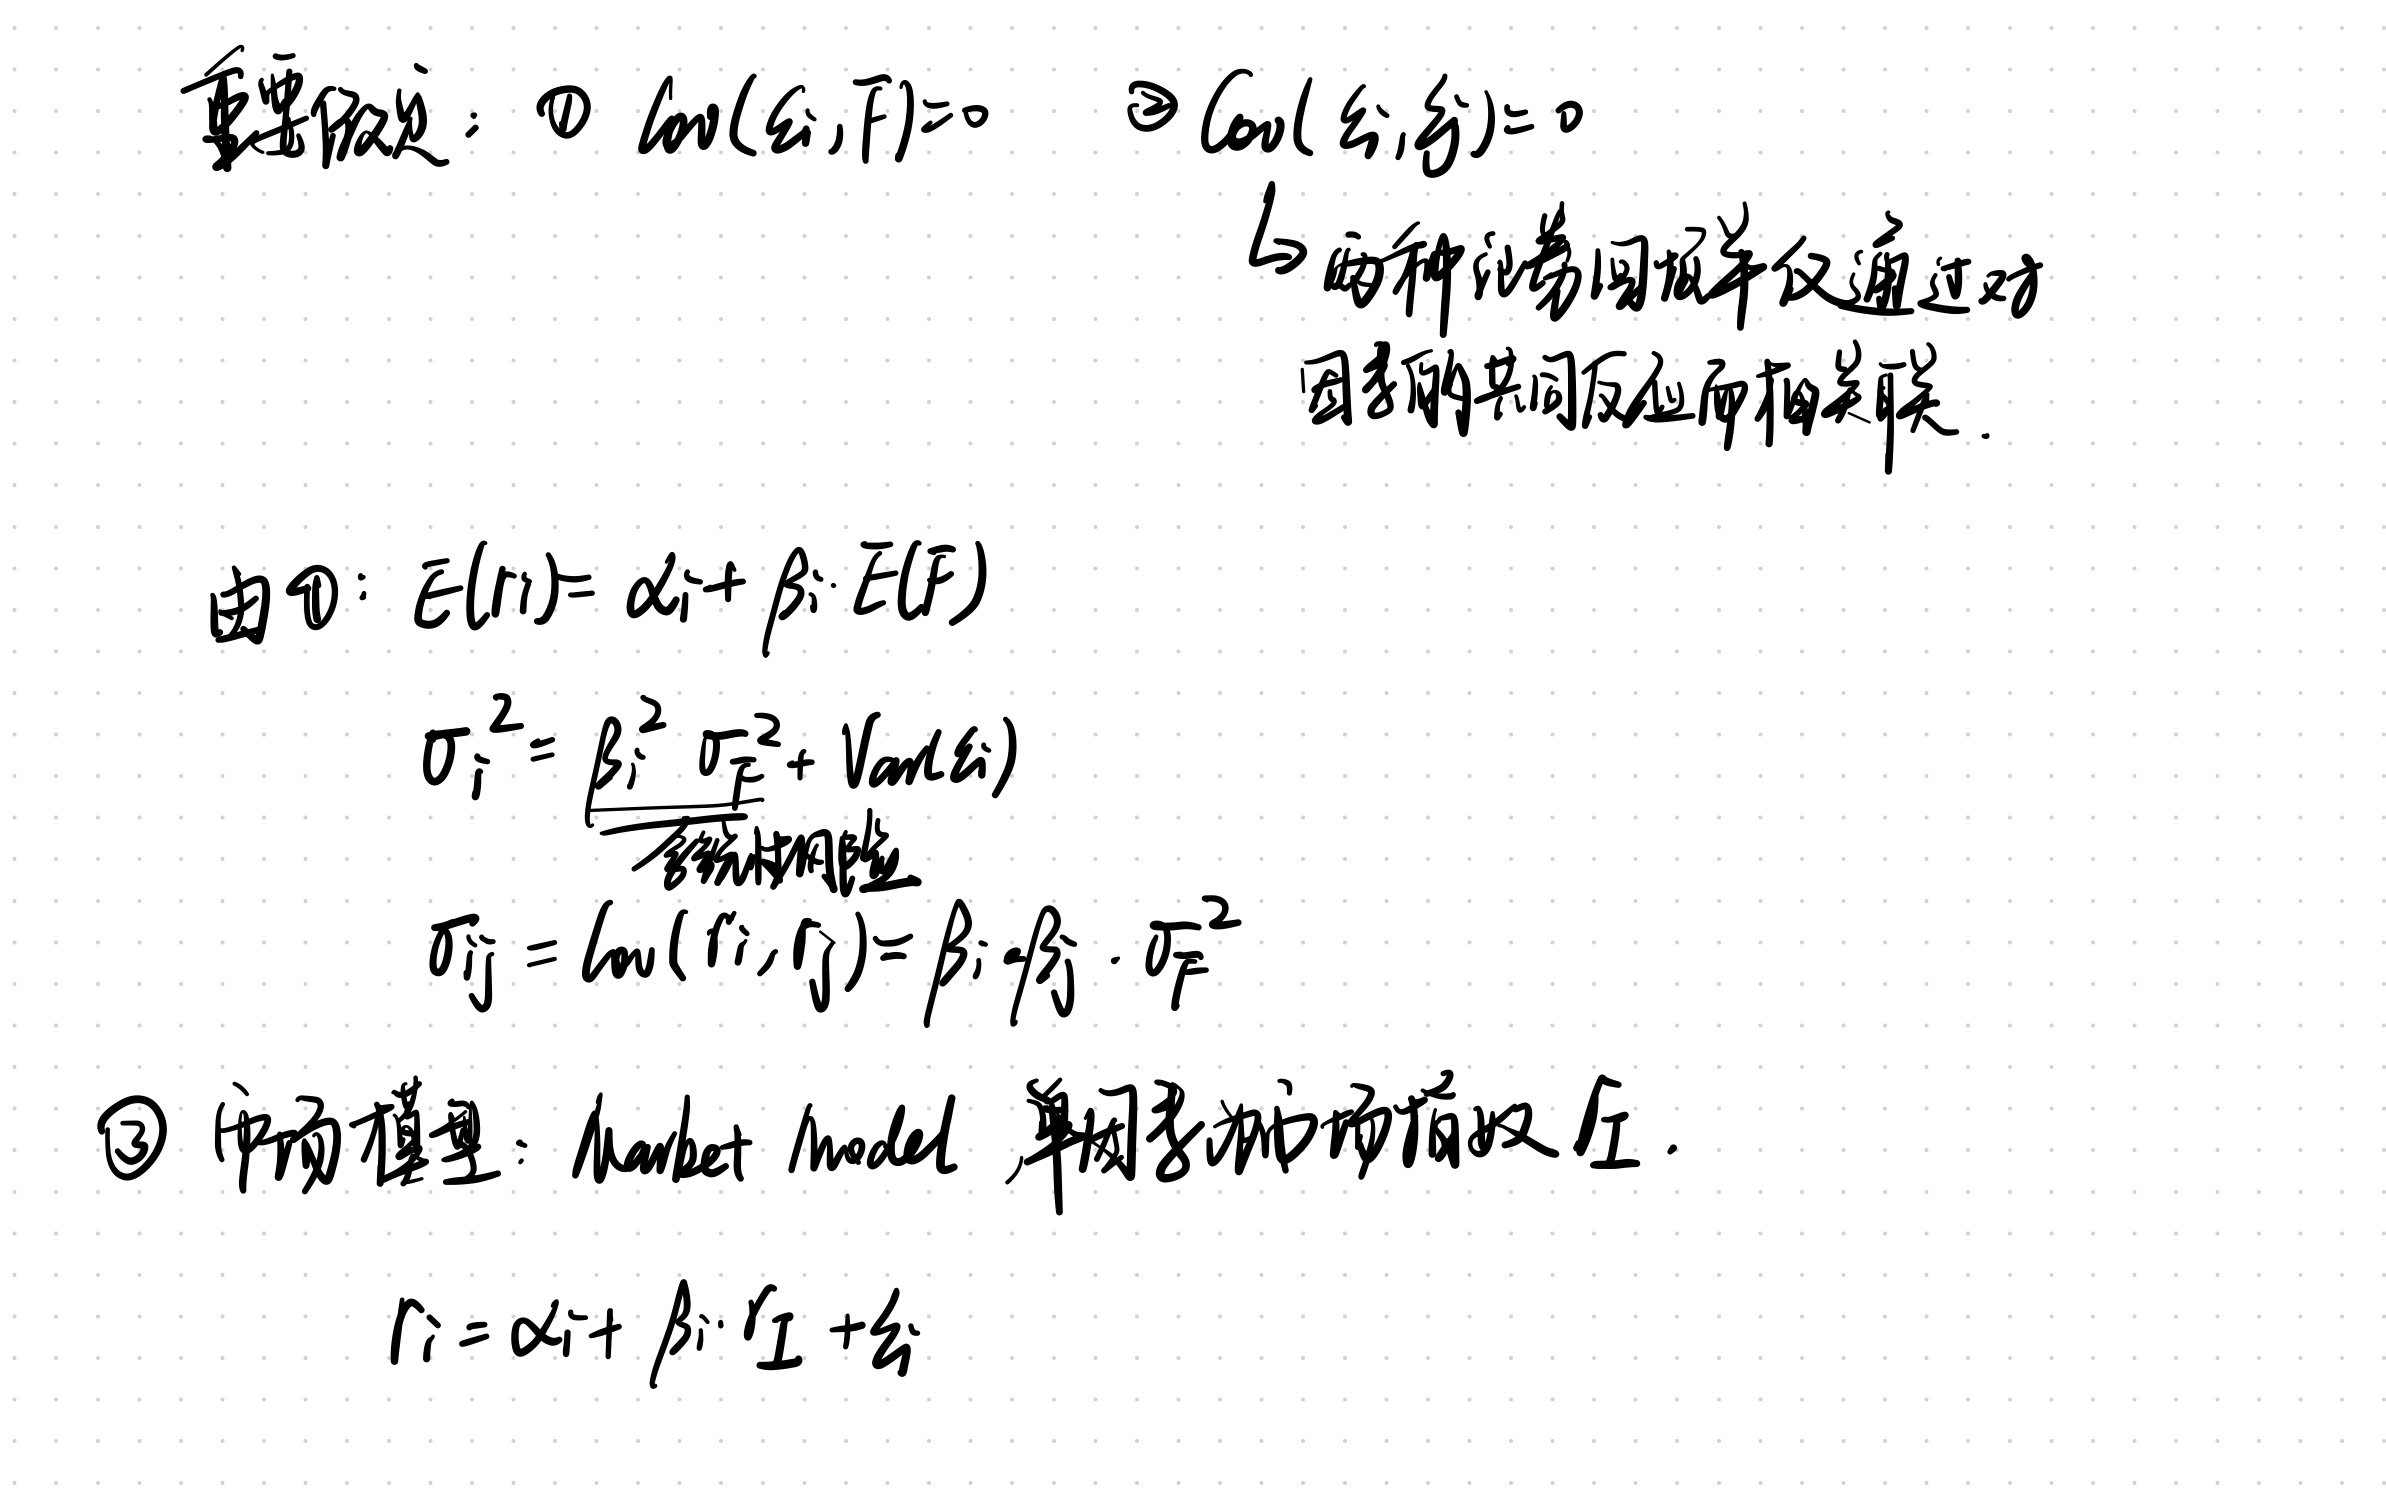 重要假定: ① Cov(εi, F)=0 ② Cov(εi, εj)=0
↳ 两种证券回报率仅通过对
因素的共同反应而相关联.
由①: E(ri)= αi + βi·E(F)
σi² = βi² σF² + Var(εi)
系统性风险
σij = Cov(ri, rj)= βi·βj·σF²
③ 市场模型: Market Model 单因素为市场指数 rI.
ri = αi + βi·rI + εi